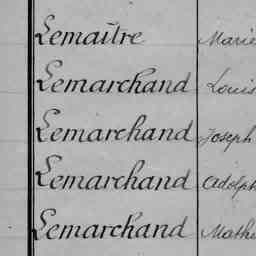 Lemaître Marie
Lemarchand Louis
Lemarchand Joseph
Lemarchand Adolph
Lemarchand Mathu